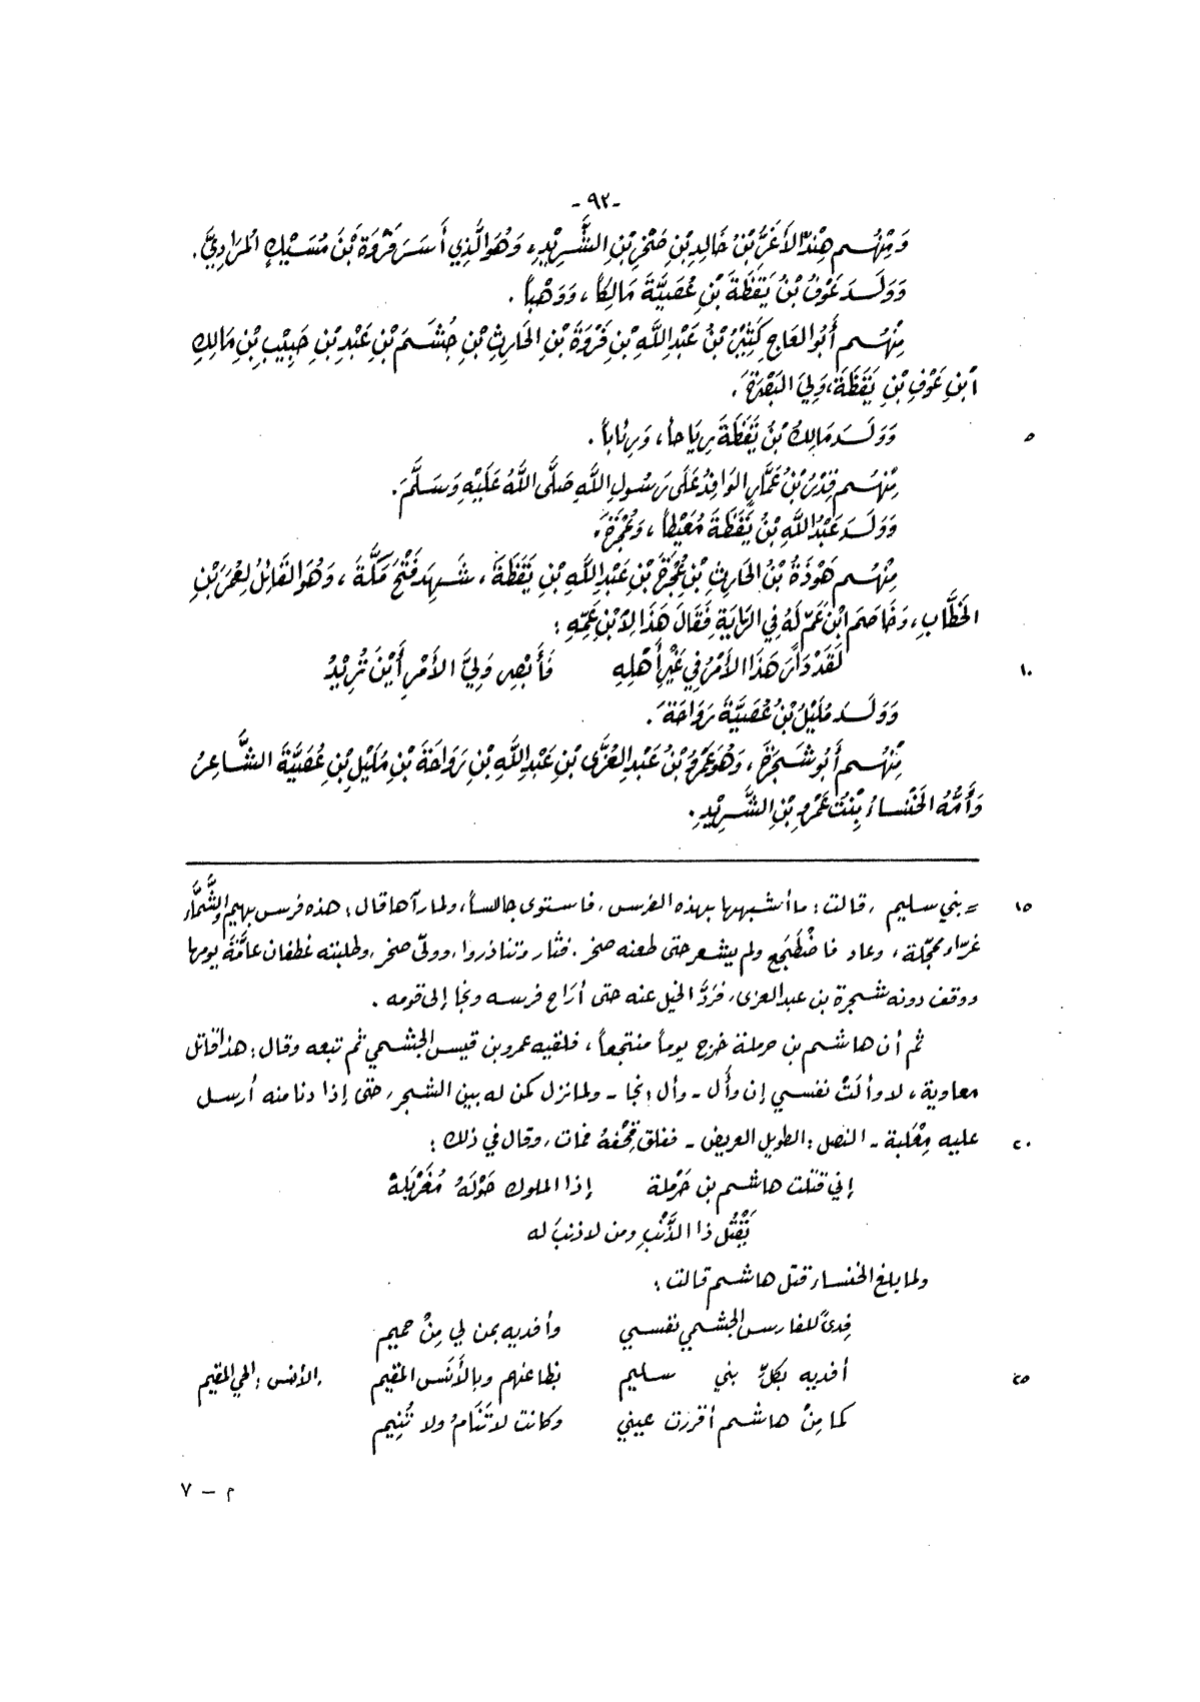 -٩٢-
وَمِنْهُم هِنْدٌ الأَغَرُّ بْنُ خَالِدِ بْنِ صَخْرِ بْنِ الشَّرِيْدِ، وَهُوَ الَّذِي أَسَرَ فَرْوَةَ بْنَ مُسَيْكٍ المُرَادِيَّ.
وَوَلَدَ عَوْفُ بْنُ يَقَظَةَ بْنِ عُصَيَّةَ مَالِكاً، وَوَهْباً.
مِنْهُم أَبُو العَاجِ كَثِيْرُ بْنُ عَبْدِ اللَّهِ بْنِ فَرْوَةَ بْنِ الحَارِثِ بْنِ جُشَمَ بْنِ عَبْدِ بْنِ حَبِيْبِ بْنِ مَالِكِ
ابْنِ عَوْفِ بْنِ يَقَظَةَ، وَلِيَ البَصْرَةَ.
٥ وَوَلَدَ مَالِكُ بْنُ يَقَظَةَ رِيَاحاً، وَرِئَاباً.
مِنْهُم قِدْرُ بْنُ عَمَّارٍ الوَافِدُ عَلَى رَسُولِ اللَّهِ صَلَّى اللَّهُ عَلَيْهِ وَسَلَّمَ.
وَوَلَدَ عَبْدُ اللَّهِ بْنُ يَقَظَةَ مُعَيْطاً، وَعُجْرَةَ.
مِنْهُم هَوْذَةُ بْنُ الحَارِثِ بْنِ عُجْرَةَ بْنِ عَبْدِ اللَّهِ بْنِ يَقَظَةَ، شَهِدَ فَتْحَ مَكَّةَ، وَهُوَ القَائِلُ لِعُمَرَ بْنِ
الخَطَّابِ، وَخَاصَمَ ابْنَ عَمٍّ لَهُ فِي الرَايَةِ فَقَالَ هَذَا لِابْنِ عَمِّهِ:
١٠ لَقَدْ دَارَ هَذَا الأَمْرُ فِي غَيْرِ أَهْلِهِ فَأَبْصِر وَلِيَّ الأَمْرِ أَيْنَ تُرِيْدُ
وَوَلَدَ مُلَيْلُ بْنُ عُصَيَّةَ رَوَاحَةَ.
مِنْهُم أَبُو شَجَرَةَ، وَهُوَ عَمْرُو بْنُ عَبْدِ العُزَّى بْنِ عَبْدِ اللَّهِ بْنِ رَوَاحَةَ بْنِ مُلَيْلِ بْنِ عُصَيَّةَ الشَّاعِرُ
وَأُمُّهُ الخَنْسَاءُ بِنْتُ عَمْرِو بْنِ الشَّرِيْدِ.
١٥ = بني سليم، قالت: ما أشبهها بهذه الفرس، فاستوى جالساً، ولما رآها قال: هذه فرس بهيم والشَّمَّاء
غرّاء محجّلة، وعاد فاضْطَجَع ولم يشعر حتى طعنه صخر. فثار وتناذروا، وولّى صخر، وطلبته غطفان عامَّةَ يومها
ووقف دونه شجرة بن عبد العزى، فَرَدَّ الخيل عنه حتى أرَاح فرسه ونجا إلى قومه.
ثم أن هاشم بن حرملة خرج يوماً منتجعاً، فلقيه عمرو بن قيس الجشمي ثم تبعه وقال: هذا قاتل
معاوية، لا وألَتْ نفسي إن وأَل - وأل: نجا - ولما نزل كمن له بين الشجر، حتى إذا دنا منه أرسل
٢٠ عليه مِعْبَلة - النصل: الطويل العريض - ففلق قِحْفهُ فمات، وقال في ذلك:
إني قتلت هاشم بن حَرْملة إذا الملوك حَوْلَهُ مُغَرْبَلَهْ
يَقْتُل ذا الذَّنْبِ ومن لا ذنبَ له
ولما بلغ الخنساء قتل هاشم قالت:
فِدىً للفارس الجشمي نفسي وأفديه بمن لي مِنْ حميم
٢٥ أفديه بكلّ بني سليم بظاعنهم وبالأَنَس المقيم ,الأنس: الحي المقيم
كما مِنْ هاشم أقررت عيني وكانت لا تَنَامُ ولا تُنِيم
م - ٧